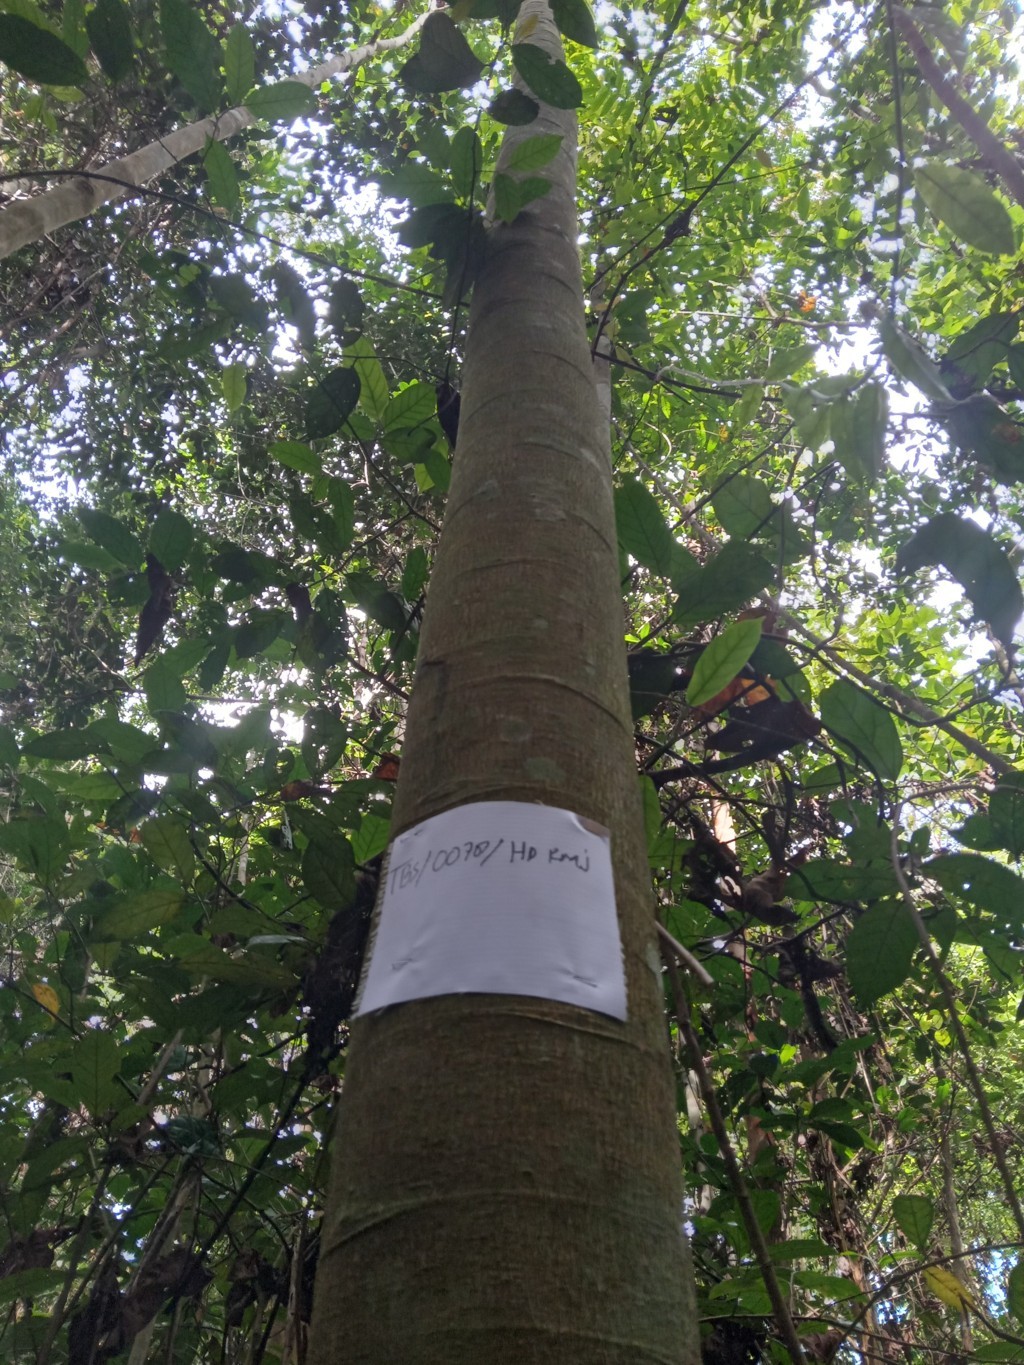 TBS/0070/ HD Kmj